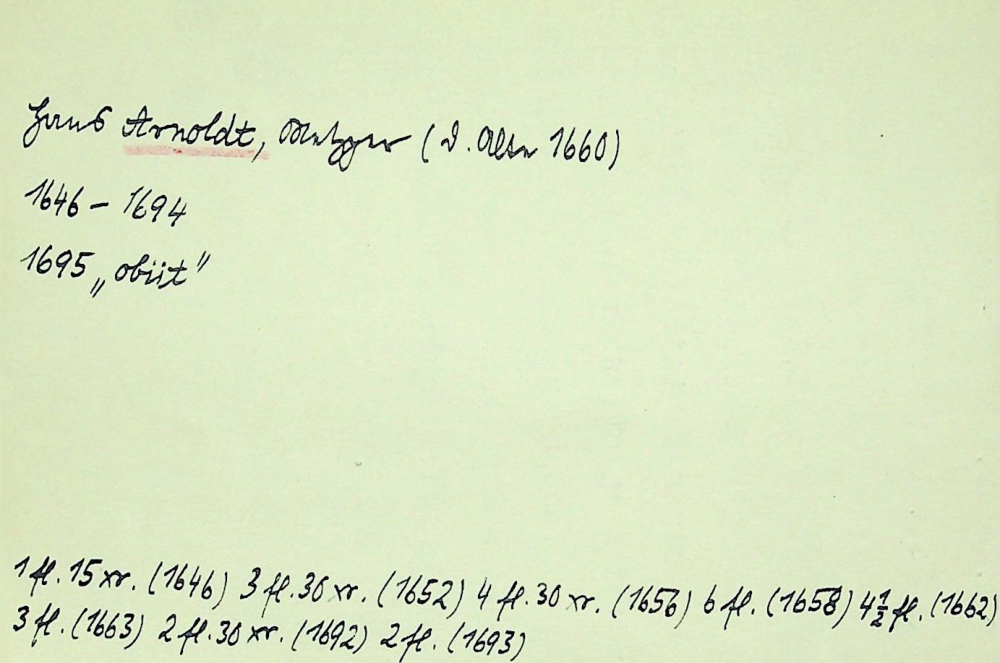 Hans Arnoldt, Metzger (d. Alte 1660)
1646 – 1694
1695 „obiit"
1 fl. 15 xr. (1646) 3 fl. 30 xr. (1652) 4 fl. 30 xr. (1656) 6 fl. (1658) 4½ fl. (1662)
3 fl. (1663) 2 fl. 30 xr. (1692) 2 fl. (1693)